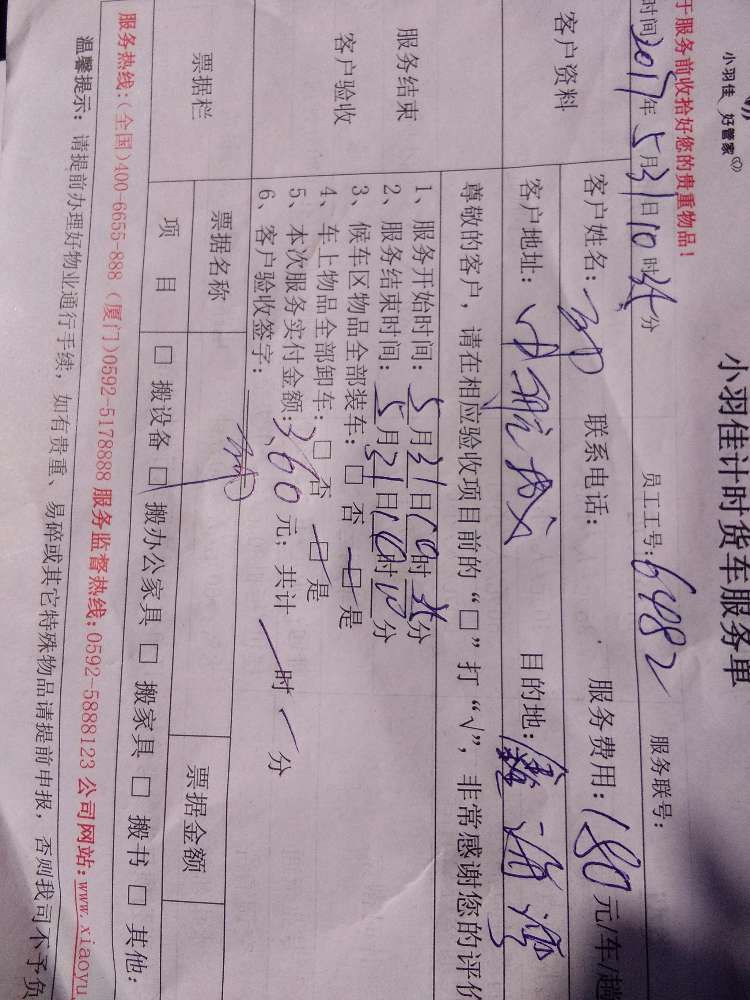 小羽佳 好管家
小羽佳计时货车服务单
于服务前收拾好您的贵重物品!
时间2017年5月31日10时 分 员工工号:6482 服务联号:
客户资料
客户姓名: 联系电话: 服务费用:180元/车/趟
客户地址: 目的地:
服务结束
客户验收
尊敬的客户，请在相应验收项目前的“□”打“√”，非常感谢您的评价
1、服务开始时间:5月31日10时 分
2、服务结束时间:5月31日10时10分
3、候车区物品全部装车:□ 否 □ 是
4、车上物品全部卸车:□ 否 □ 是
5、本次服务实付金额:360元；共计 一 时 一 分
6、客户验收签字:
票据栏
票据名称 票据金额
项 目 □ 搬设备 □ 搬办公家具 □ 搬家具 □ 搬书 □ 其他:
服务热线:(全国)400-6655-888 (厦门)0592-5178888 服务监督热线:0592-5888123 公司网站:www.xiaoyu
温馨提示: 请提前办理好物业通行手续，如有贵重、易碎或其它特殊物品请提前申报，否则我司不予负